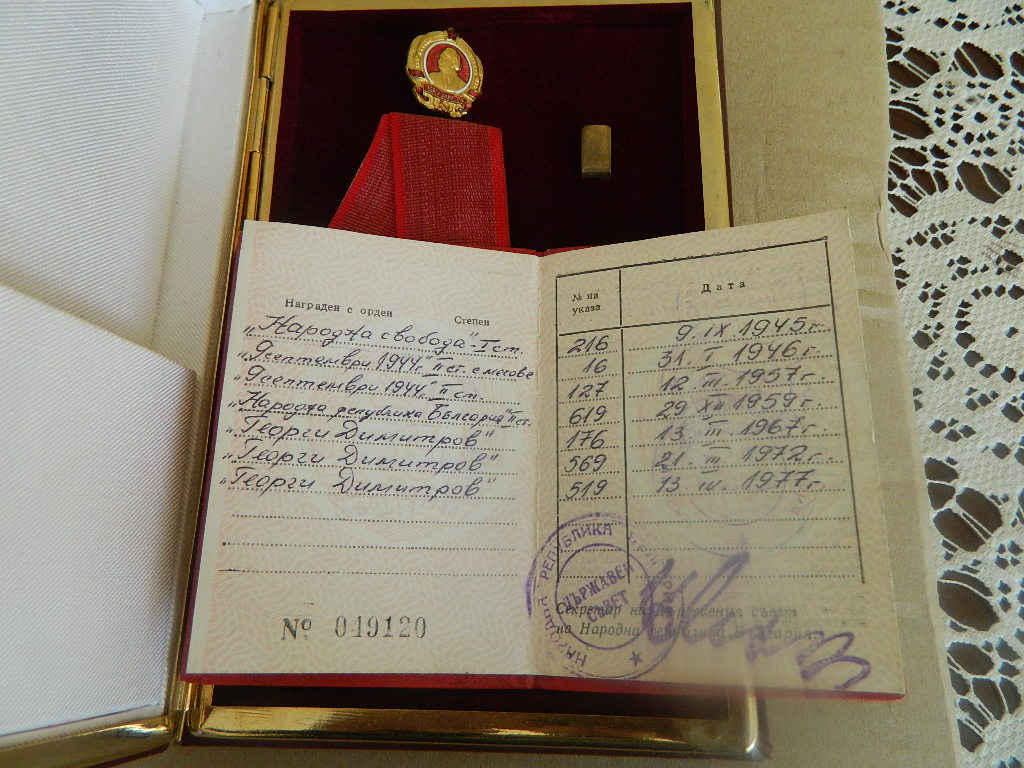 Награден с орден Степен
„Народна свобода" I ст.
„9 септември 1944 г." II ст. с мечове
„9 септември 1944" II ст.
„Народна република България" II ст.
„Георги Димитров"
„Георги Димитров"
„Георги Димитров"
№ 049120
№ на указа Дата
216 9. IX 1945 г.
16 31. I 1946 г.
127 12. III. 1957 г.
619 29 XII 1959 г.
176 13. III 1967 г.
569 21. III 1972 г.
519 13 IV. 1977 г.
НАРОДНА РЕПУБЛИКА
ДЪРЖАВЕН
СЪВЕТ
Секретар на Държавния съвет
на Народна република България: